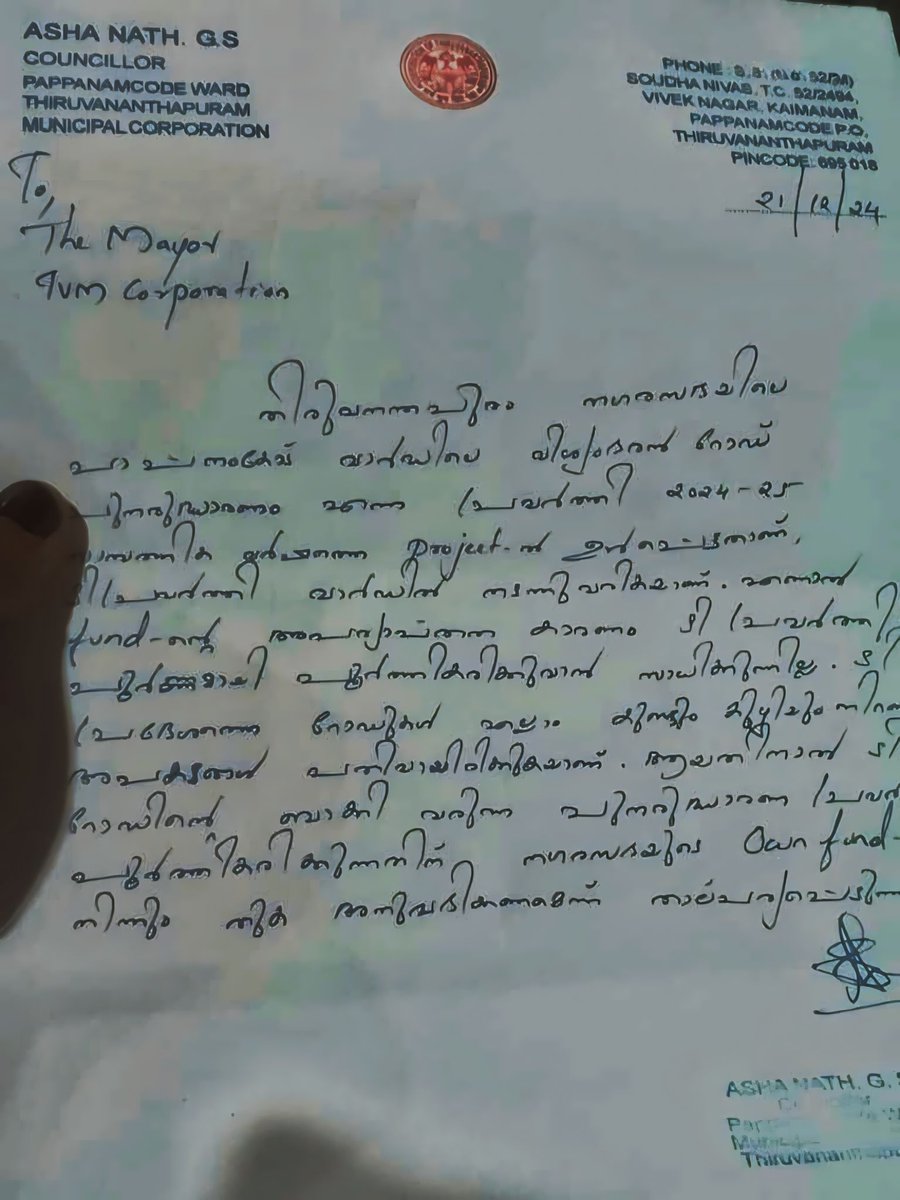 ASHA NATH. G.S
COUNCILLOR
PAPPANAMCODE WARD
THIRUVANANTHAPURAM
MUNICIPAL CORPORATION
PHONE :
SOUDHA NIVAS, T.C. 52/2494,
VIVEK NAGAR, KAIMANAM,
PAPPANAMCODE P.O,
THIRUVANANTHAPURAM
PINCODE: 695 018
21/12/24
To,
The Mayor
TVM Corporation
തിരുവനന്തപുരം നഗരസഭയിലെ
പാപ്പനംകോട് വാർഡിലെ വിശ്വംഭരൻ റോഡ്
പുനരുദ്ധാരണം എന്ന പ്രവർത്തി 2024-25
സാമ്പത്തിക വർഷത്തെ project-ൽ ഉൾപ്പെട്ടതാണ്,
ടി പ്രവർത്തി വാർഡിൽ നടന്നുവരികയാണ്. എന്നാൽ
fund-ന്റെ അപര്യാപ്തത കാരണം ടി പ്രവർത്തി
പൂർണ്ണമായി പൂർത്തീകരിക്കുവാൻ സാധിക്കുന്നില്ല. ടി
പ്രദേശത്തെ റോഡുകൾ എല്ലാം കുണ്ടും കുഴിയും
അപകടങ്ങൾ പതിവായിരിക്കുകയാണ്. ആയതിനാൽ ടി
റോഡിന്റെ ബാക്കി വരുന്ന പുനരുദ്ധാരണ
പൂർത്തീകരിക്കുന്നതിന് നഗരസഭയുടെ Own fund-
നിന്നും തുക അനുവദിക്കണമെന്ന്
ASHA NATH. G.